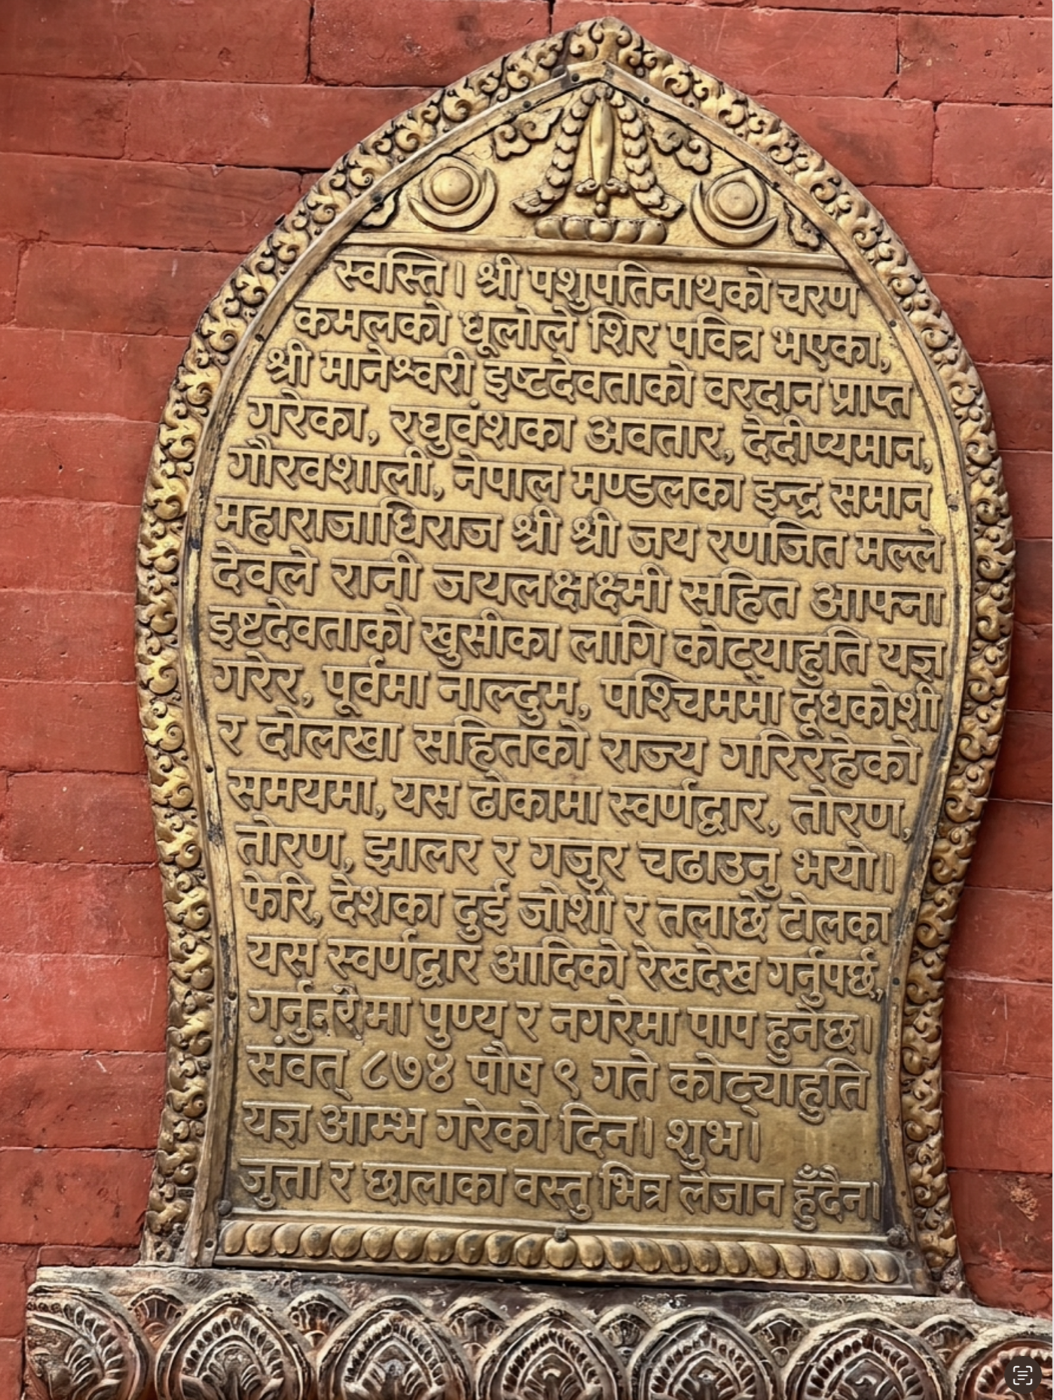 स्वस्ति। श्री पशुपतिनाथको चरण
कमलको धूलोले शिर पवित्र भएका,
श्री मानेश्वरी इष्टदेवताको वरदान प्राप्त
गरेका, रघुवंशका अवतार, देदीप्यमान,
गौरवशाली, नेपाल मण्डलका इन्द्र समान
महाराजाधिराज श्री श्री जय रणजित मल्ल
देवले रानी जयलक्षक्ष्मी सहित आफ्ना
इष्टदेवताको खुसीका लागि कोट्याहुति यज्ञ
गरेर, पूर्वमा नाल्दुम, पश्चिममा दूधकोशी
र दोलखा सहितको राज्य गरिरहेको
समयमा, यस ढोकामा स्वर्णद्वार, तोरण,
तोरण, झालर र गजुर चढाउनु भयो।
फेरि, देशका दुई जोशी र तलाछे टोलका
यस स्वर्णद्वार आदिको रेखदेख गर्नुपर्छ,
पुण्य र नगरेमा पाप हुनेछ।
संवत् ८७४ पौष ९ गते कोट्याहुति
यज्ञ आम्भ गरेको दिन। शुभ।
जुत्ता र छालाका वस्तु भित्र लैजान हुँदैन।